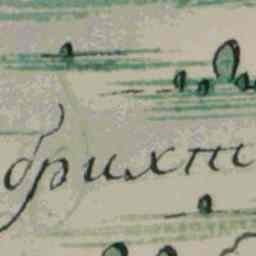 брихти